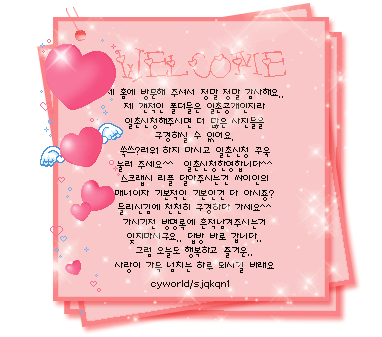 WELCOME
제 홈에 방문해 주셔서 정말 정말 감사해요..
제 개인적인 폴더들은 일촌공개인지라
일촌신청해주시면 더 많은 사진들을
구경하실 수 있어요.
쑥쓰?러워 하지 마시고 일촌신청 꾸욱
눌러 주세요^^ 일촌신청환영합니다^^
스크랩시 리플 달아주시는건 싸이인의
매너이자 기본적인 기본인건 다 아시죠?
들리신김에 천천히 구경하다 가세요^^
가시기전 방명록에 흔적남겨주시는거
잊지마시구요.. 답방 바로 갑니다..
그럼 오늘도 행복하고 즐거운..
사랑이 가득 넘치는 하루 되시길 바래요
cyworld/sjqkqn1